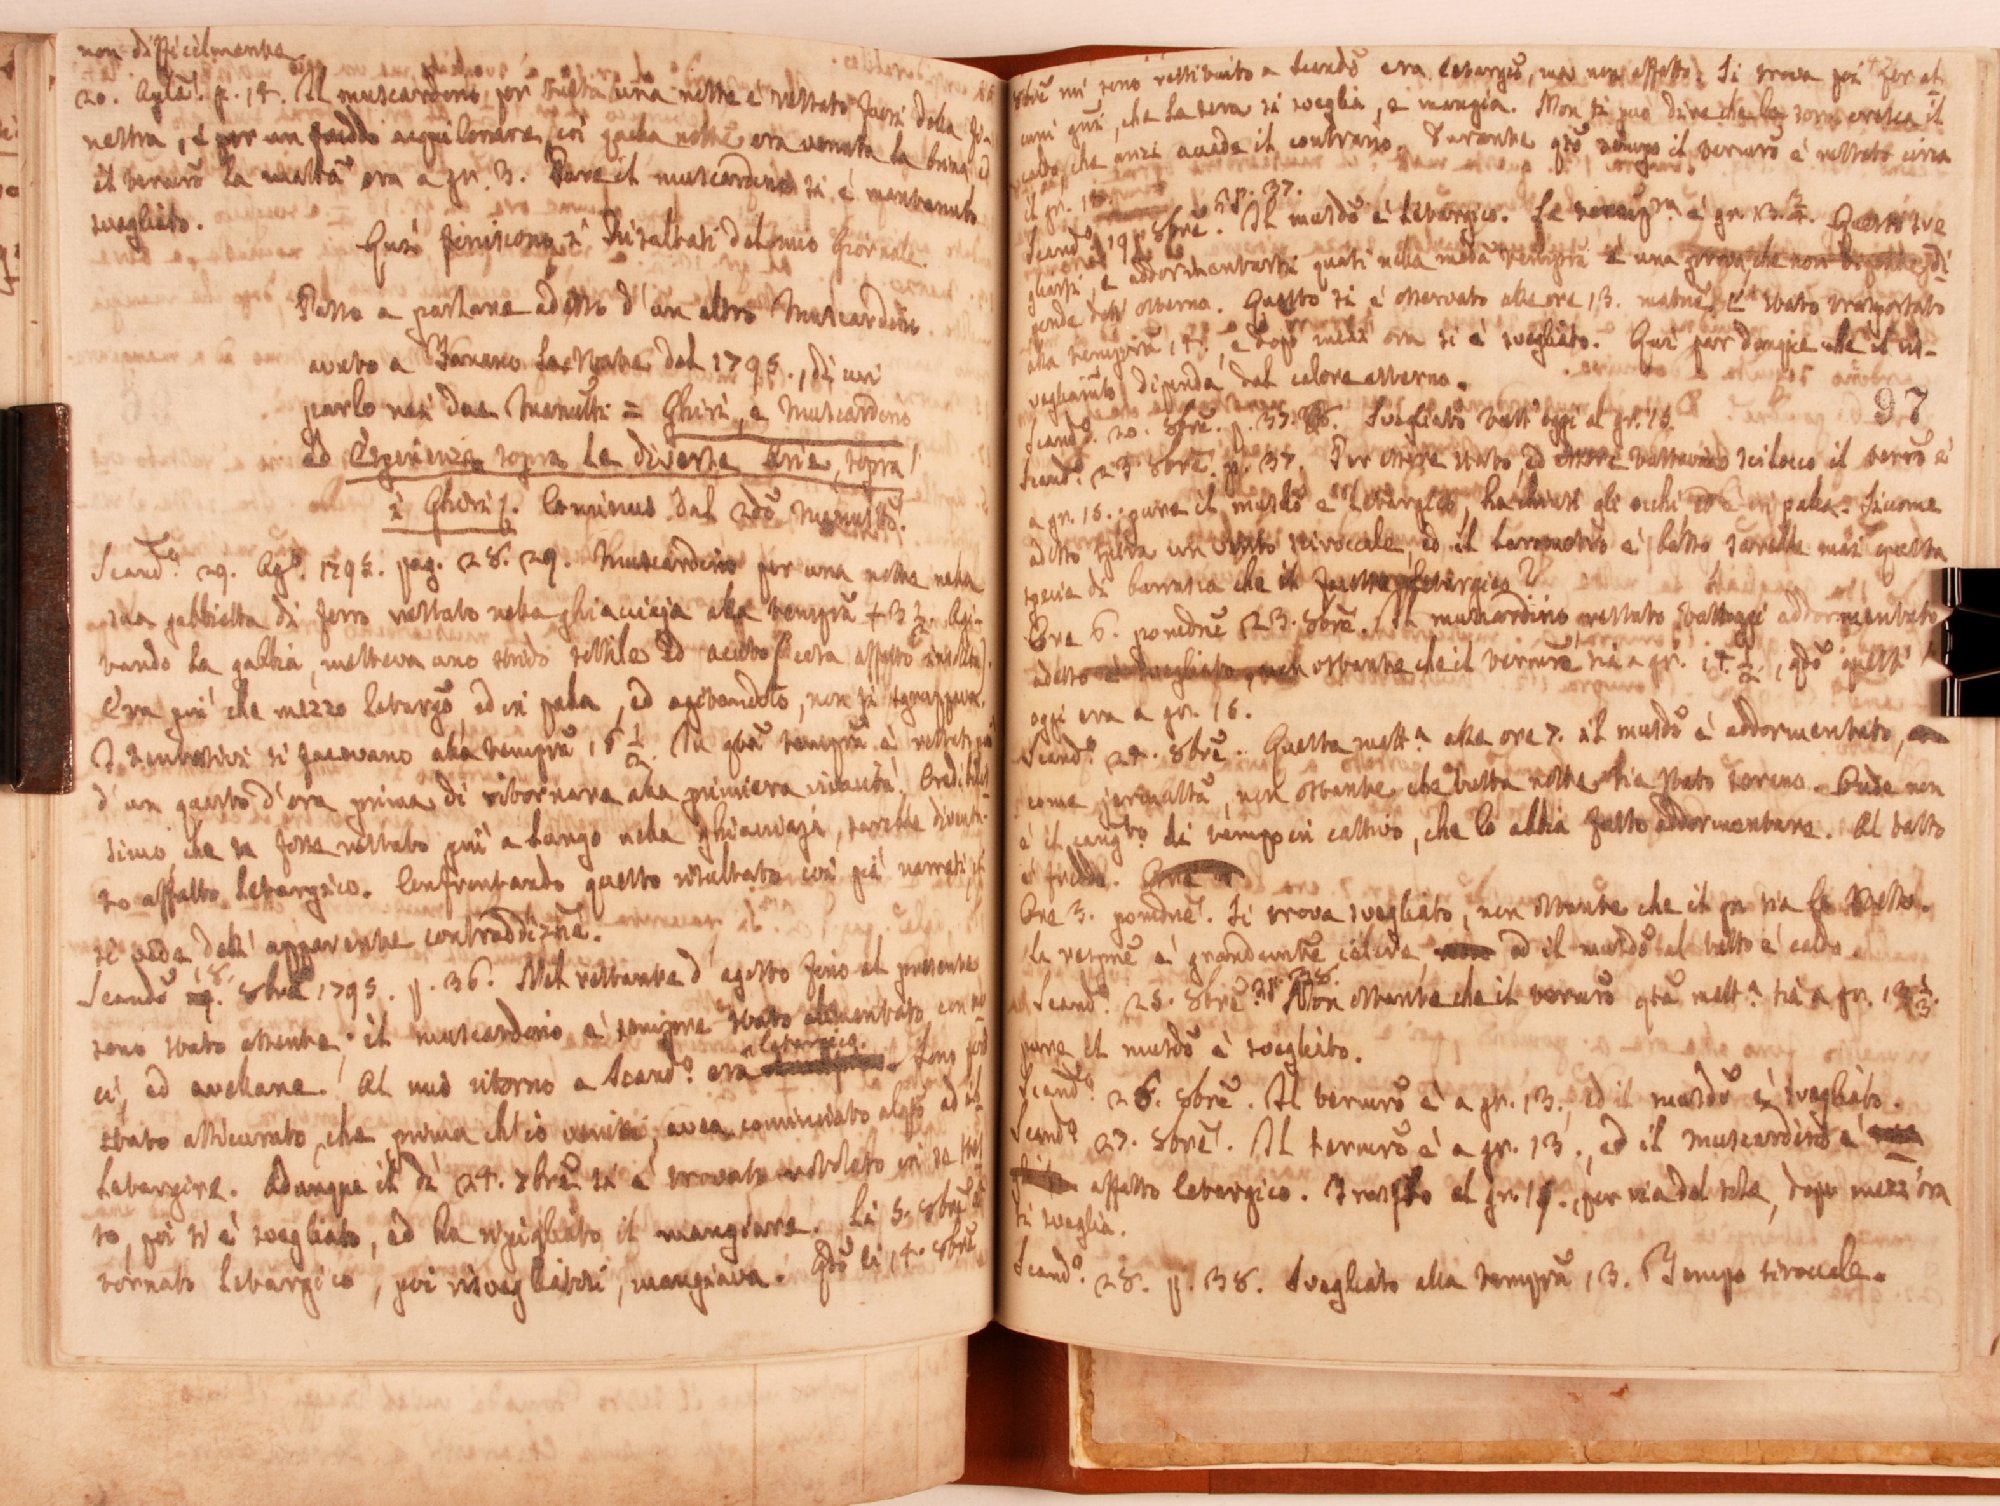 non difficilmente.
20. Aple. p. 14. Il muscardino per tutta una notte è restato fuori della fi-
nestra, e per un freddo acquilonare, così quella notte era venuta la brina, ed
il termro la mattã era a gr. 3. Pure il muscardino si è mantenuto
svegliato.
Quì finiscono i Risultati del mio Giornale.
Passo a parlare adesso d'un altro Muscardino
avuto a Fanano la State del 1795., di cui
parlo nei due Manustti = Ghiri, e Muscardino
ed Esperienze sopra le diverse Arie, sopra
i Ghiri /. Cominus dal 2do Manustto.
Scand.o 29. Ag.o 1795. pag. 28. 29. Muscardino per una notte nella
sua gabbietta di ferro restato nella ghiacciaja alla temprã + 3 1/2. Agi-
tando la gabbia, metteva uno strido sottile ed acuto (cosa affatto insolita).
Era più che mezzo letargõ, ed in palla, ed agitandolo, non si sgruppava.
I tentativi si facevano alla temprã 16 1/2. In qsta temprã è restato più
d'un quarto d'ora prima di ritornare alla primiera vivacità. Credibilis-
simo, che se fosse restato più a lungo nella ghiacciaja, sarebbe diventa-
to affatto letargico. Confrontando questo risultato coi già narrati,
si vede dell'apparente contraddizne.
Scandõ 18. 8bre 1795. p. 36. Nel restante d'agosto fino al presente
sono stato assente: il muscardino è sempre stato alimentato con no
ci, ed avellane. Al mio ritorno a Scand.o era letargico. Sono però
stato assicurato, che prima ch'io venissi, avea cominciato alqto ad il
letargire. Adunque il dì 24. 7bre si è trovato rotolato in se stes
so, poi si è svegliato, ed ha ripigliato il mangiare. Li 5. 8bre è
tornato letargico, poi risvegliatosi, mangiava. Qdo li 14. 8bre
8bre mi sono restituito a Scandõ era letargicõ, ma non affatto. Si trova poi per al-
cuni giri, che la sera si sveglia, e mangia. Non si può dire che lo sonno cresca il
caldo, che anzi accade il contrario. Durante qto tempo il termro è restato circa
il gr. 1
Scand.o 19. 8bre. p. 37. Il muscdõ è letargico. La tempra è gr. 13 3/4. Questo sve
gliarsi, e addormentarsi quasi nella meda temprã è una prova che non dipende di
pende dall'esterno. Questo si è osservato alle ore 13. matne. È stato trasportato
alla temprã 14., e dopo mezz'ora si è svegliato. Quì par dunque che il ris-
vegliamto dipenda dal calore esterno.
Scand.o 20. 8bre. p. 37. Svegliato tutt'oggi al gr. 15.
Scand.o 23. 8bre. p. 37. Per essere stato, ed essere tuttavia scilocco il termro è
a gr. 16.; pure il muscdõ è letargico, ha chiusi gli occhi ed è in palla. Siccome
adesso spira un vento siroccale, ed il barometro è basso sarebbe mai questa
specie di burrasca che il facesse letargico?
Ore 6. pomdne 23. 8bre. Il muscardino restato tutt'oggi addormentato
adesso ostante che il termro sia a gr. 14 1/2, qdo quest'
oggi era a gr. 16.
Scand.o 24. 8bre. Questa matt.a alle ore 7. il muscdõ è addormentato,
come jermattã, non ostante che tutta notte sia stato sereno. Onde non
è il cangto di tempo in cattivo, che lo abbia fatto addormentare. Al tatto
è freddo.
Ore 3. pomdne. Si trova svegliato, non ostante che il gr. sia lo stesso.
La respne è grandemte celere ed il muscdõ al tatto è caldo.
Scand.o 25. 8bre. p. 38. Non ostante che il termro qta matt.a sia a gr. 13 1/3.
pure il muscdõ è svegliato.
Scand.o 26. 8bre. Il termro è a gr. 13., ed il muscdõ è svegliato.
Scand.o 27. 8bre. Il termro è a gr. 13., ed il Muscardino è
affatto letargico. Trasplo al gr. 15., per via del sole, dopo mezz'ora
si sveglia.
Scand.o 28. p. 38. Svegliato alla temprã 13. Tempo siroccale.
97